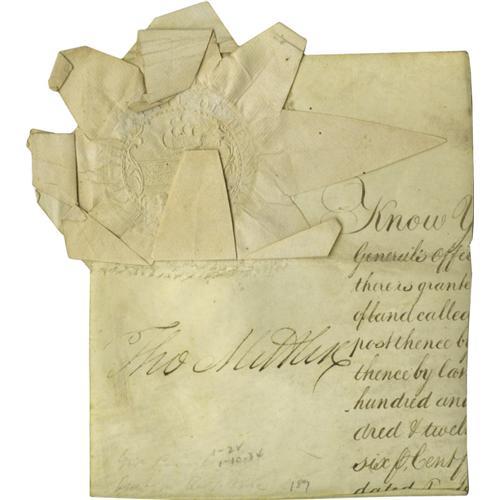 Know Y
General's Offi
there is grante
of land called
post thence by
thence by lan
hundred and
dred & twel
six p. Cent f
dated
Tho Mifflin
1-24
1-10-34
189